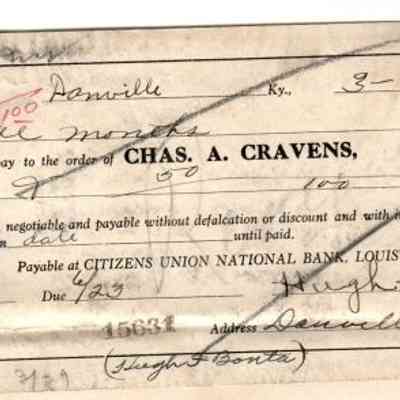 100 Danville Ky., 3-
months
pay to the order of CHAS. A. CRAVENS,
50
100
negotiable and payable without defalcation or discount and with
date until paid.
Payable at CITIZENS UNION NATIONAL BANK, LOUIS
Due 6/23 Hugh
15631 Address Danville
(Hugh F Bonta)